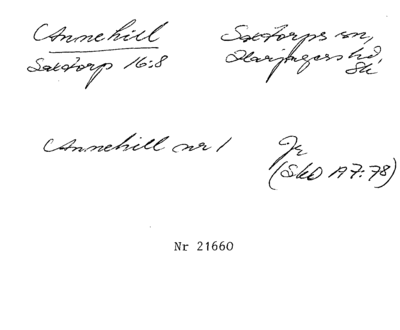 Annehill
Saxtorp 16:8
Saxtorps sn,
Harjagers hd,
Sk
Annehill nr 1
Je
(SkO A7:78)
Nr 21660